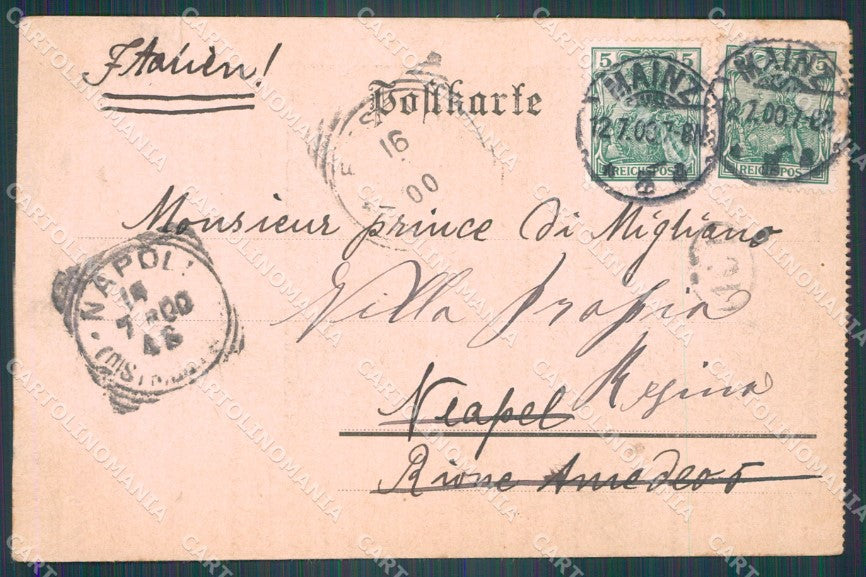 Italien!
Postkarte
5 5
REICHSPOST
MAINZ
12.7.00.7-8N.
5
REICHSPOST
MAINZ
12.7.00.7-8N.
16
00
Monsieur prince di Migliano
Villa Propia
Regina
Neapel
Rione Amedeo 5
NAPOLI
14
7 00
CARTOLINOMANIA